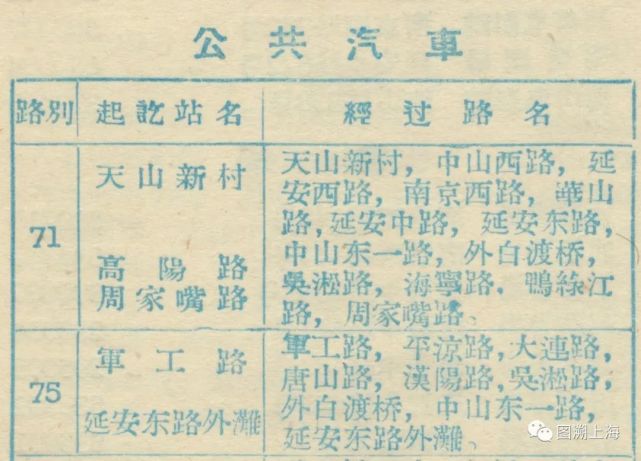 公共汽車
路別 起訖站名 經过路名
71
天山新村
高陽路
周家嘴路
天山新村，中山西路，延
安西路，南京西路，華山
路，延安中路，延安东路，
中山东一路，外白渡桥，
吳淞路，海寧路．鴨綠江
路，周家嘴路。
75
軍工路
延安东路外灘
軍工路，平涼路，大連路，
唐山路，漢陽路，吳淞路，
外白渡桥，中山东一路，
延安东路外灘。
图溯上海